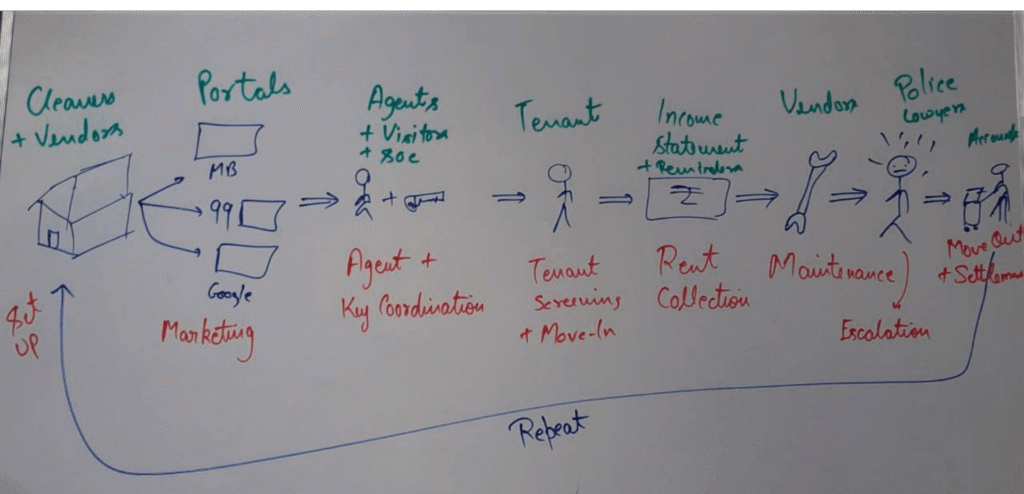 Cleaners
+ Vendors
Portals
MB
99
Google
Agents
+ Visitors
+ Soc
+
Tenant
Income
Statement
+ Reminders
₹
Vendors
Police
Lawyers
Set
UP
Marketing
Agent +
Key Coordination
Tenant
Screening
+ Move-In
Rent
Collection
Maintenance
Escalation
Move Out
Repeat